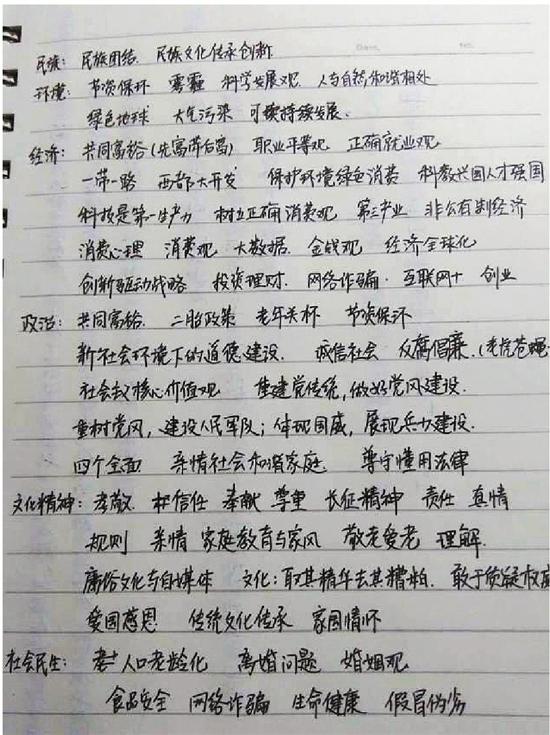 民族: 民族团结. 民族文化传承创新
环境: 节资保环 雾霾 科学发展观. 人与自然和谐相处
绿色地球 大气污染 可续持续发展.
经济: 共同富裕(先富带后富) 职业平等观 正确就业观
一带一路 西部大开发 保护环境绿色消费 科教兴国人才强国
科技是第一生产力 树立正确消费观 第三产业 非公有制经济
消费心理 消费观 大数据 金钱观 经济全球化
创新驱动战略 投资理财. 网络诈骗. 互联网+ 创业
政治: 共同富裕. 二胎政策 老年关怀 节资保环
新社会环境下的道德建设. 诚信社会 反腐倡廉.(老虎苍蝇
社会主义核心价值观 重建党传统,做好党风建设.
重树党风,建设人民军队;体现国威,展现兵力建设.
四个全面 亲情社会和谐家庭 尊守懂用法律
文化精神: 孝敬. 信任 奉献 尊重 长征精神 责任 真情
规则 亲情 家庭教育与家风 敬老爱老 理解.
庸俗文化与自媒体 文化:取其精华去其糟粕. 敢于质疑权威
爱国感恩 传统文化传承 家国情怀
社会民生: 人口老龄化 离婚问题 婚姻观
食品安全 网络诈骗 生命健康 假冒伪劣